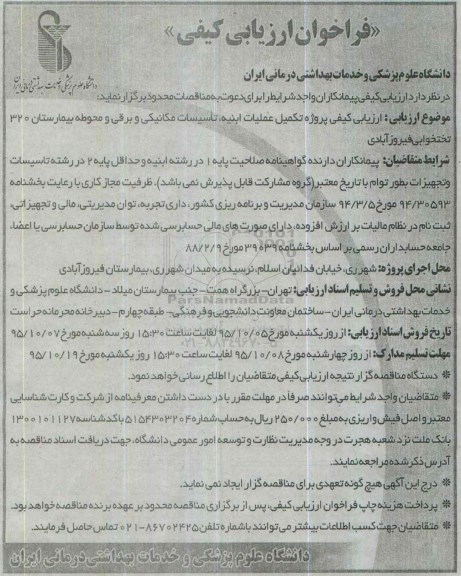 «فراخوان ارزیابی کیفی»
دانشگاه علوم پزشکی و خدمات بهداشتی درمانی ایران
دانشگاه علوم پزشکی و خدمات بهداشتی درمانی ایران
در نظر دارد ارزیابی کیفی پیمانکاران واجد شرایط را برای دعوت به مناقصات محدود برگزار نماید:
موضوع ارزیابی: ارزیابی کیفی پروژه تکمیل عملیات ابنیه، تأسیسات مکانیکی و برقی و محوطه بیمارستان ۳۲۰
تختخوابی فیروزآبادی
شرایط متقاضیان: پیمانکاران دارنده گواهینامه صلاحیت پایه ۱ در رشته ابنیه و حداقل پایه ۲ در رشته تاسیسات
وتجهیزات بطور توام با تاریخ معتبر (گروه مشارکت قابل پذیرش نمی باشد)، ظرفیت مجاز کاری با رعایت بخشنامه
۹۴/۳۰۵۹۳ مورخ ۹۴/۳/۵ سازمان مدیریت و برنامه ریزی کشور، داری تجربه، توان مدیریتی، مالی و تجهیزاتی،
ثبت نام در نظام مالیات بر ارزش افزوده، دارای صورت های مالی حسابرسی شده توسط سازمان حسابرسی یا اعضاء
جامعه حسابداران رسمی بر اساس بخشنامه ۳۹۰۳۹ مورخ ۸۸/۲/۹
محل اجرای پروژه: شهر ری، خیابان فدائیان اسلام، نرسیده به میدان شهرری، بیمارستان فیروزآبادی
نشانی محل فروش و تسلیم اسناد ارزیابی: تهران- بزرگراه همت - جنب بیمارستان میلاد - دانشگاه علوم پزشکی و
خدمات بهداشتی درمانی ایران - ساختمان معاونت دانشجویی و فرهنگی- طبقه چهارم - دبیرخانه محرمانه حراست
تاریخ فروش اسناد ارزیابی: از روز یکشنبه مورخ ۹۵/۱۰/۰۵ لغایت ساعت ۱۵:۳۰ روز سه شنبه مورخ ۹۵/۱۰/۰۷
مهلت تسلیم مدارک: از روز چهارشنبه مورخ ۹۵/۱۰/۰۸ لغایت ساعت ۱۵:۳۰ روز یکشنبه مورخ ۹۵/۱۰/۱۹
* دستگاه مناقصه گزار نتیجه ارزیابی کیفی متقاضیان را اطلاع رسانی خواهد نمود.
* متقاضیان واجد شرایط می توانند صرفاً در مهلت مقرر با در دست داشتن معرفینامه از شرکت و کارت شناسایی
معتبر و اصل فیش واریزی به مبلغ ۲۵۰/۰۰۰ ریال به حساب شماره ۵۱۵۴۳۰۳۲۰۴ با کد شناسه ۱۳۰۰۱۰۱۱۲۷
بانک ملت نزد شعبه هجرت در وجه مدیریت نظارت و توسعه امور عمومی دانشگاه، جهت دریافت اسناد مناقصه به
آدرس ذکر شده مراجعه نمایند.
* درج این آگهی هیچ گونه تعهدی برای مناقصه گزار ایجاد نمی نماید.
* پرداخت هزینه چاپ فراخوان ارزیابی کیفی، پس از برگزاری مناقصه محدود بر عهده برنده مناقصه خواهد بود.
* متقاضیان جهت کسب اطلاعات بیشتر می توانند با شماره تلفن ۸۶۷۰۲۴۲۵-۰۲۱ تماس حاصل فرمایند.
دانشگاه علوم پزشکی و خدمات بهداشتی درمانی ایران
ParsNamadData